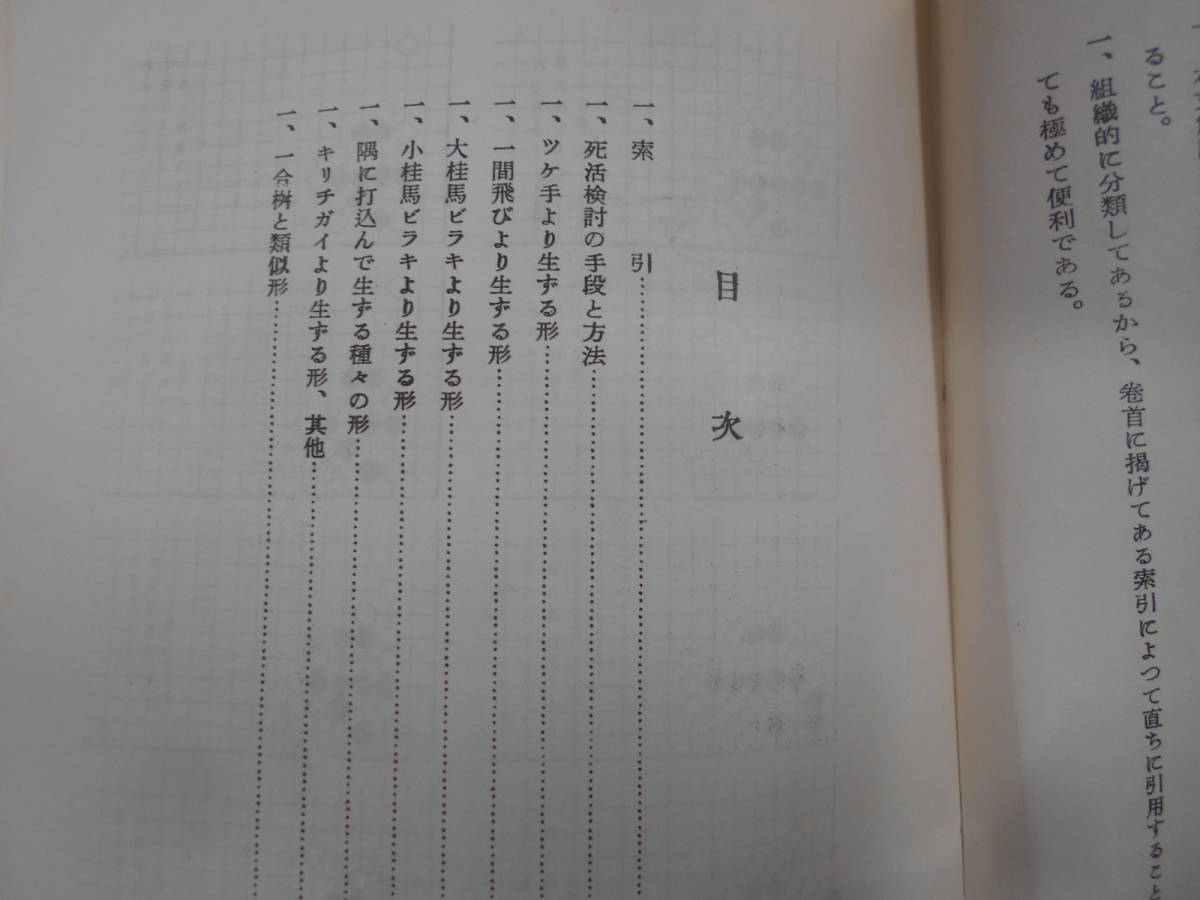 ること。
一、組織的に分類してあるから、卷首に揭げてある索引によつて直ちに引用すること
ても極めて便利である。
目次
一、索引……
一、死活検討の手段と方法……
一、ツケ手より生ずる形……
一、一間飛びより生ずる形……
一、大桂馬ビラキより生ずる形……
一、小桂馬ビラキより生ずる形……
一、隅に打込んで生ずる種々の形……
一、キリチガイより生ずる形、其他……
一、一合桝と類似形……